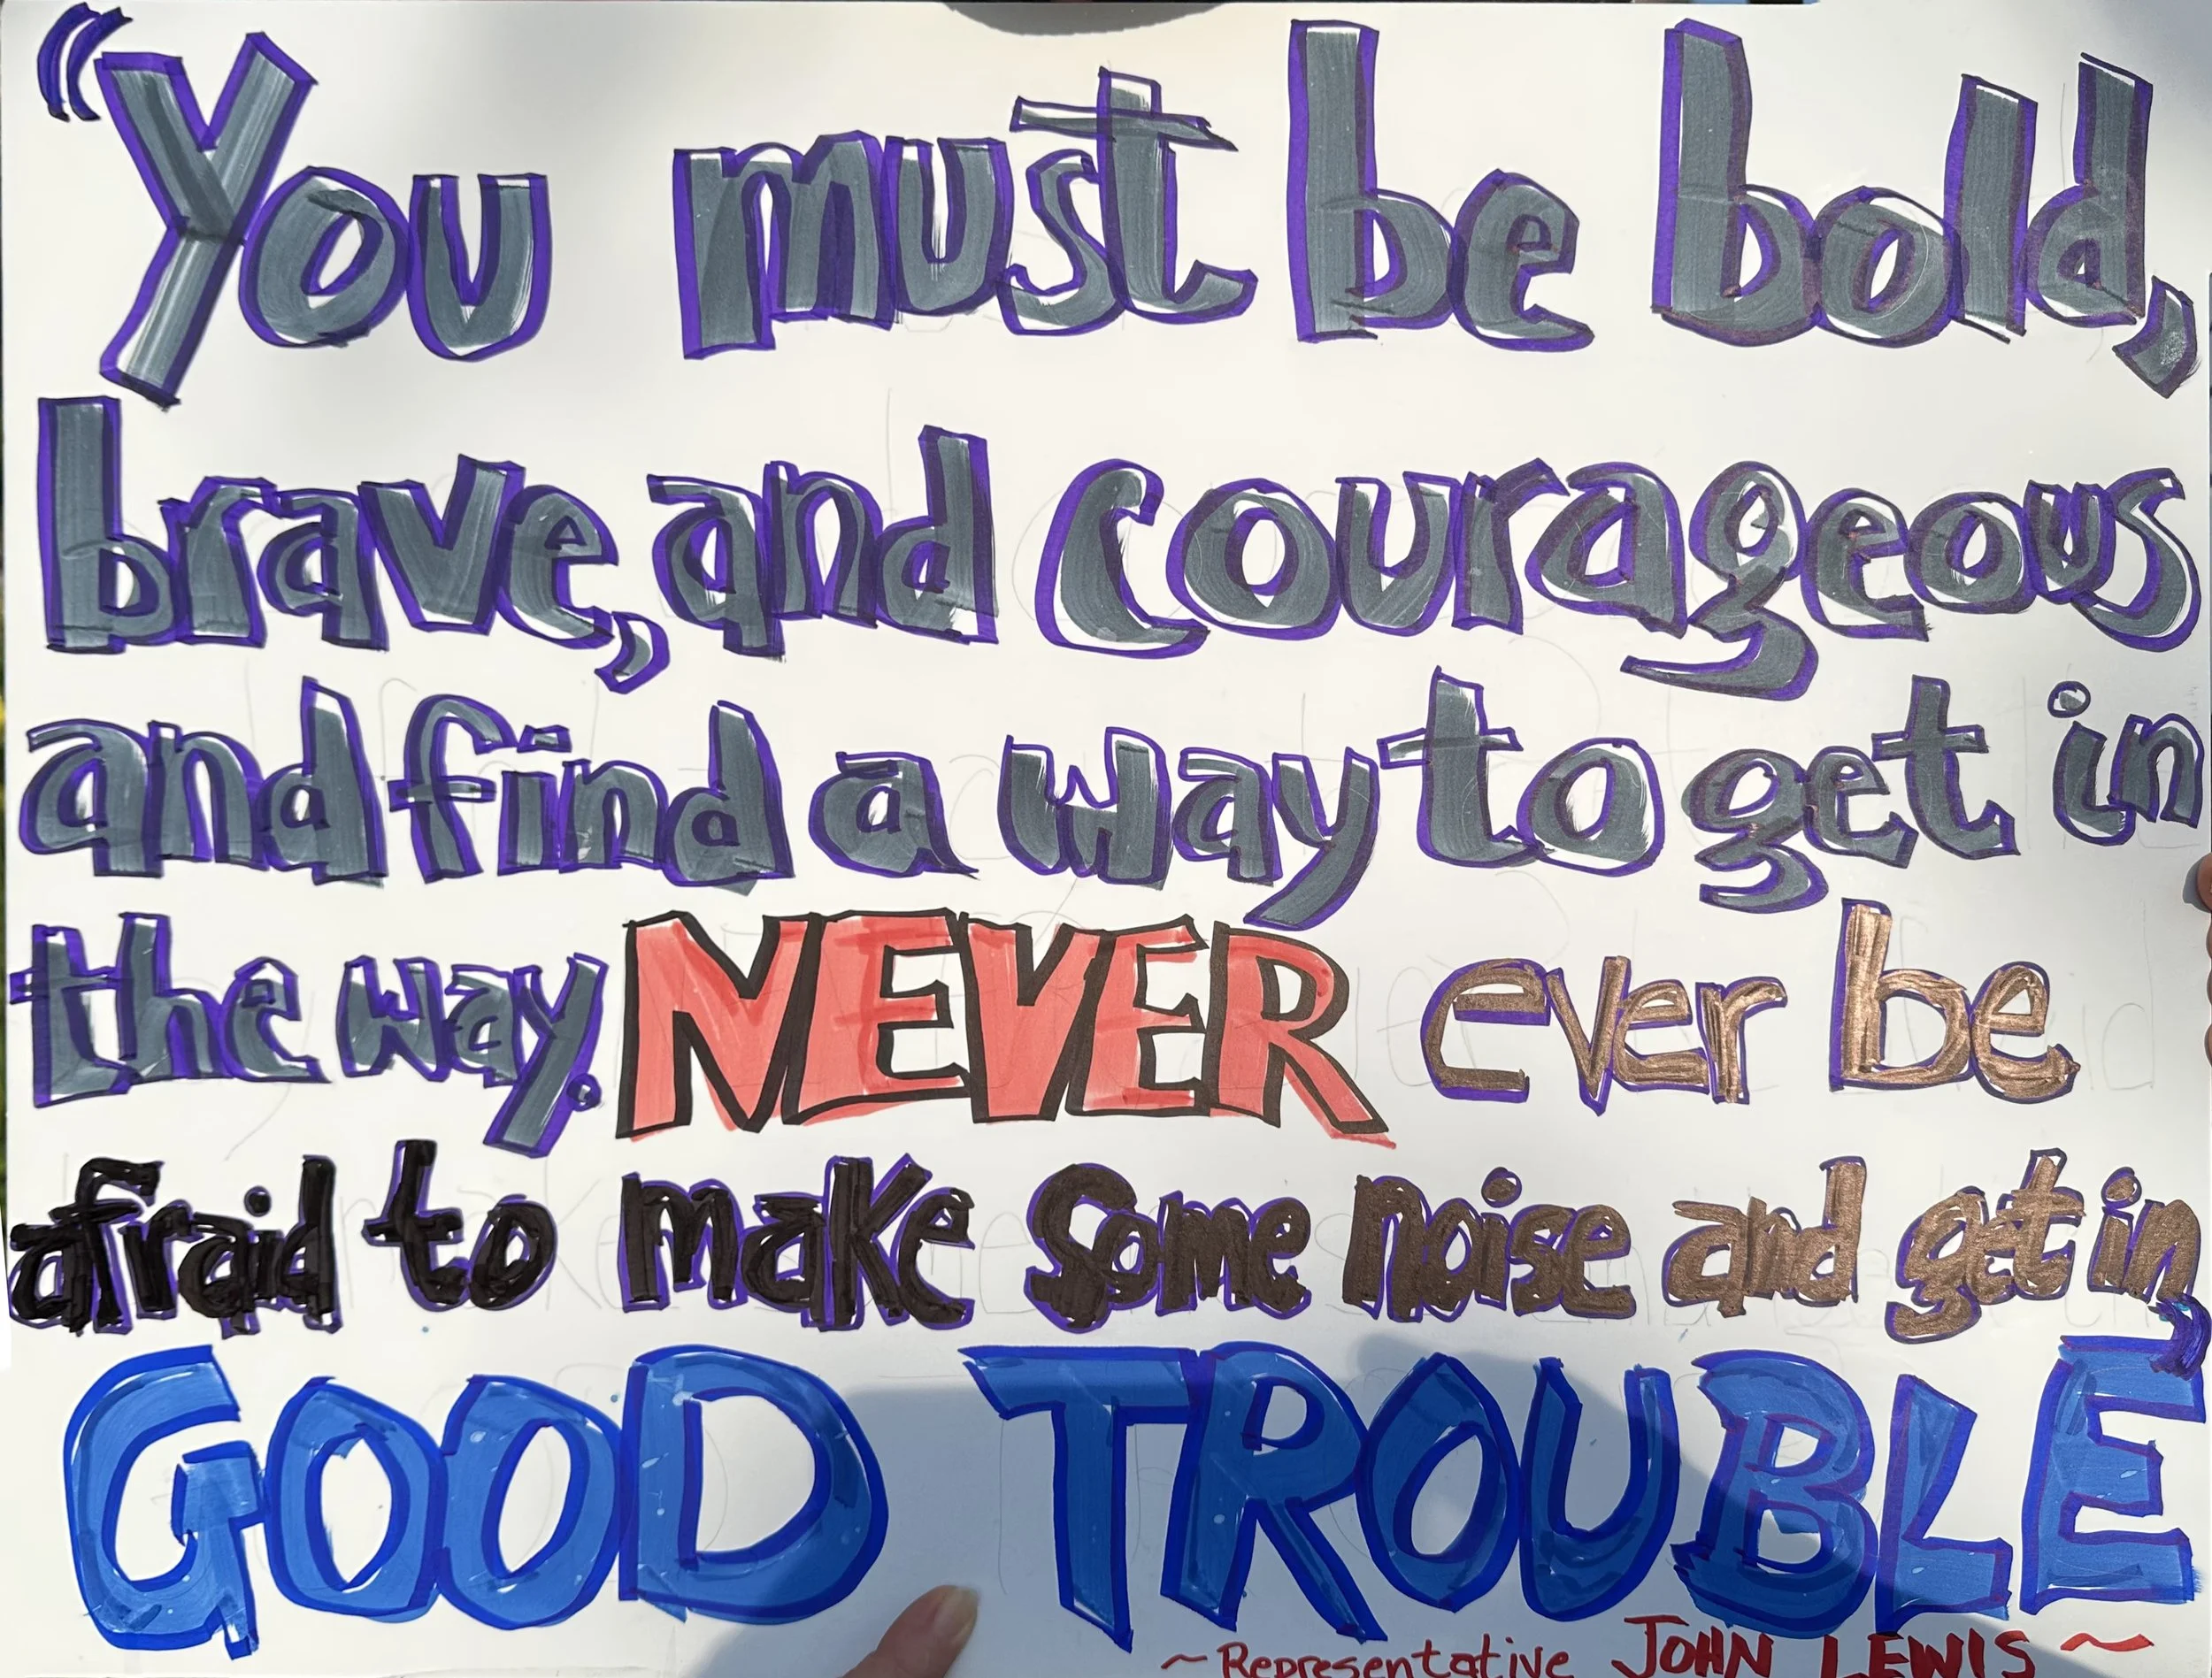 “You must be bold,
brave, and courageous
and find a way to get in
the way. NEVER ever be
afraid to make some noise and get in
GOOD TROUBLE”
~ Representative JOHN LEWIS ~